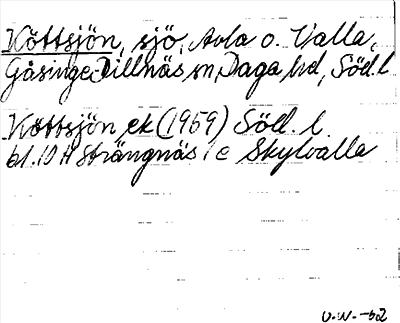 Köttsjön, sjö, Avla o. Valla,
Gåsinge-Dillnäs sn, Daga hd, Söd.l
Köttsjön ek (1959) Söd. l.
bl. 10 H Strängnäs / c Skylvalla
U.W. -62